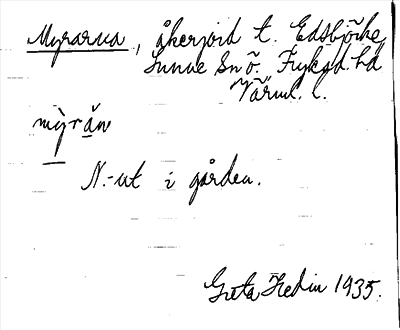 Myrarna, åkerjord t. Edsbjörke,
Sunne sn ö. Fryksd. hd
Värml. l.
mỳrăn
N.-ut i gården.
Greta Hedin 1935.